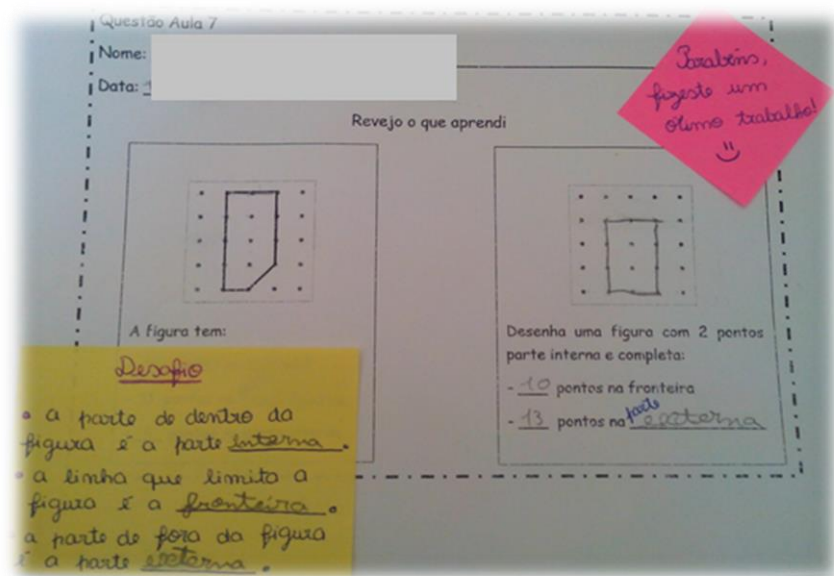 Questão Aula 7
Nome:
Data:
Parabéns,
fizeste um
ótimo trabalho!
Revejo o que aprendi
A figura tem:
Desenha uma figura com 2 pontos
parte interna e completa:
- 10 pontos na fronteira
- 13 pontos na parte externa
Desafio
• a parte de dentro da
figura é a parte interna.
• a linha que limita a
figura é a fronteira.
a parte de fora da figura
é a parte externa.